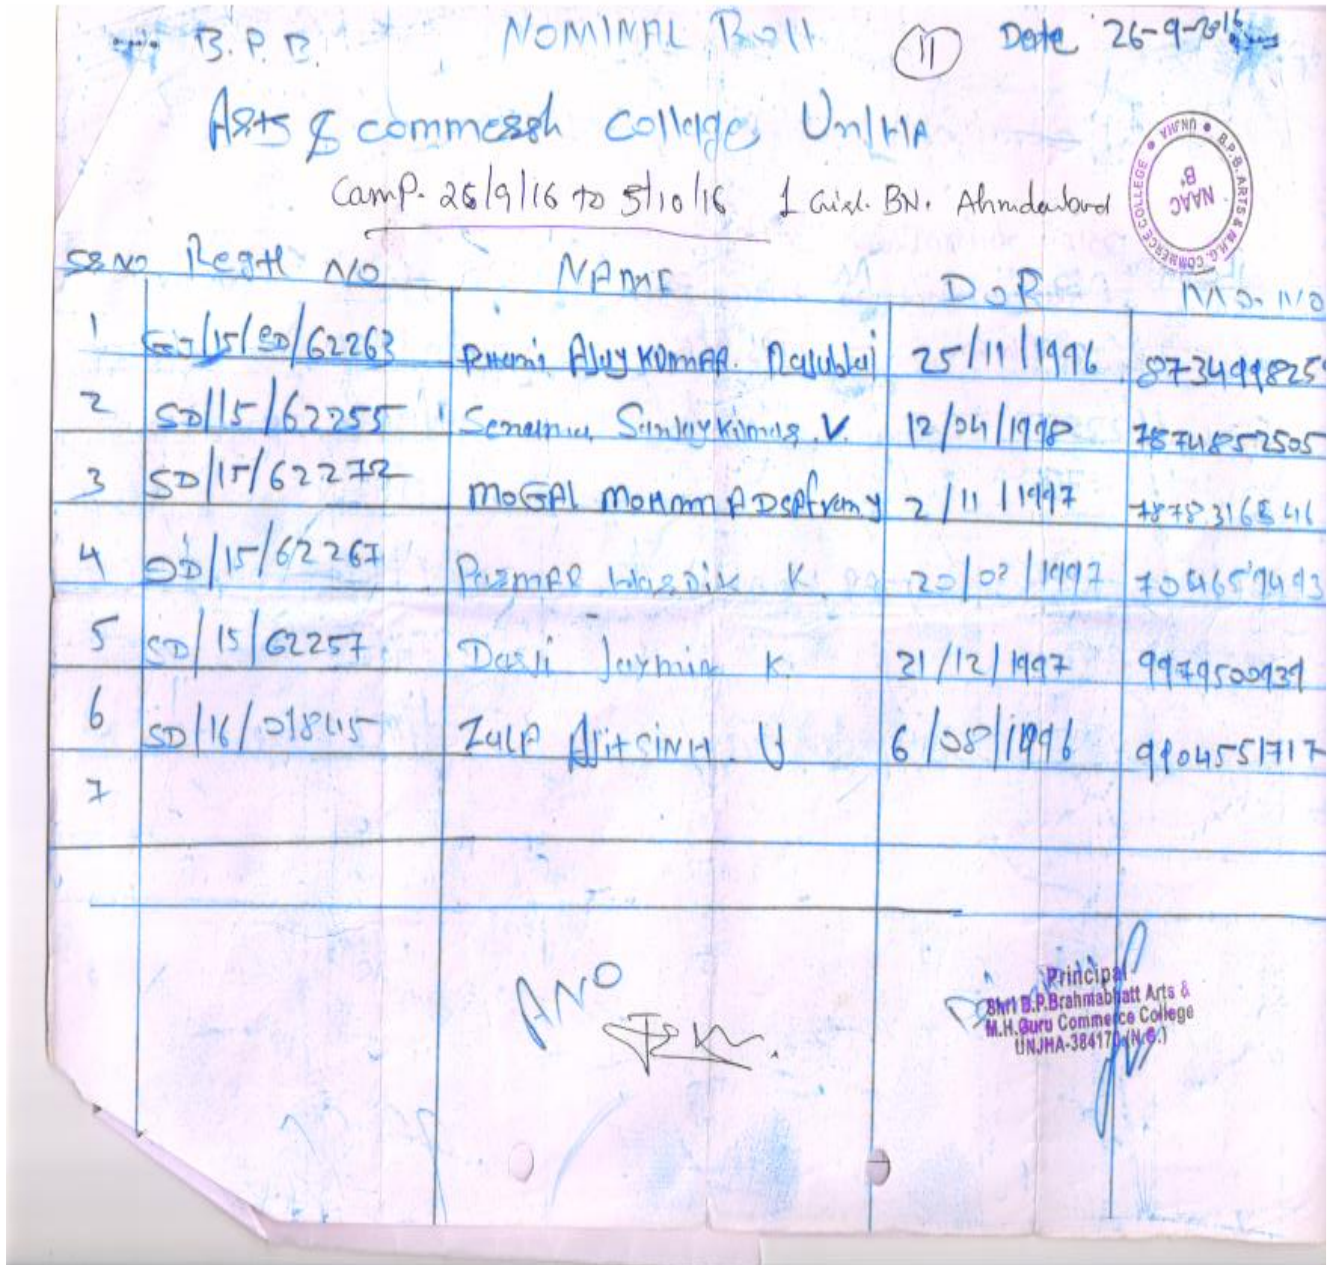 B.P.B. NOMINAL Roll (11) Date 26-9-2016
Arts & commerssh college, UnJHA
Camp. 26/9/16 to 5/10/16 1 Girl. BN. Ahmdabad
B.P.B. ARTS & M.H.G. COMMERCE COLLEGE UNJHA
NAAC
B+
SR NO Regtl NO NAME DOB MO. NO
1 GJ/15/SD/62263 AJay KUMAR. 25/11/1996 8734998259
2 SD/15/62255 SanJay Kumar. V. 12/04/1998 7874852505
3 SD/15/62272 MOGAL MOHMMAD 2/11/1997
4 SD/15/62267 ParMAR Hardik K. 1997
5 SD/15/62257 Darji Jaymin K. 21/12/1997 9979500939
6 SD/16/01845 ZALA AJitSINH. U 6/08/1996 9904551717
7
ANO
Principal
Shri B.P.Brahmabhatt Arts &
M.H.Guru Commerce College
UNJHA-384170 (N.G.)